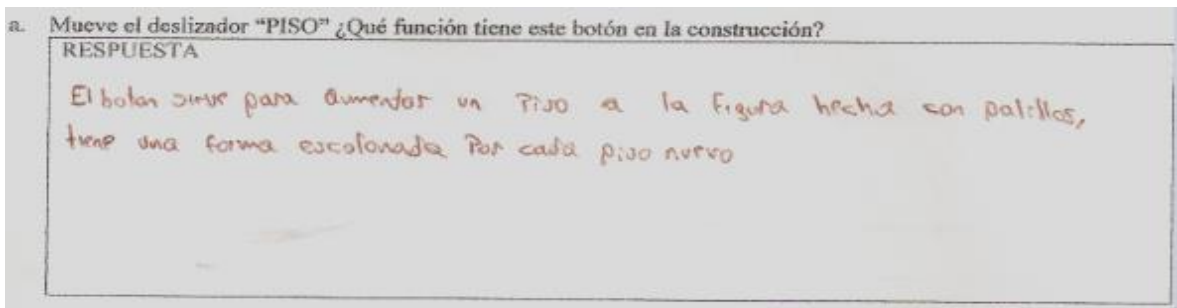 a. Mueve el deslizador “PISO” ¿Qué función tiene este botón en la construcción?
RESPUESTA
El boton sirve para aumentar un Piso a la Figura hecha con palillos,
tiene una forma escalonada Por cada piso nuevo